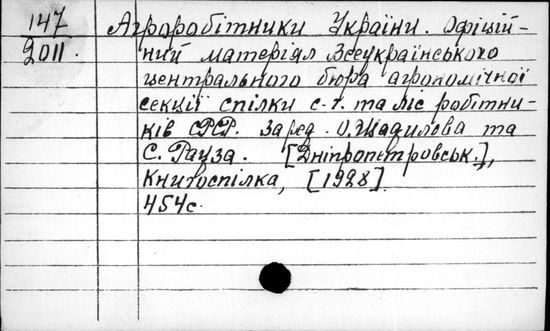 147
2011.
Агроробітники України. Офіцій-
ний матеріял Всеукраїнського
центрального бюра агрономічної
секції спілки с-г. та ліс робітни-
ків СРР. За ред. О. Шадилєва та
С. Рауза. [Дніпропетровськ.],
Книгоспілка, [1928]
454с.